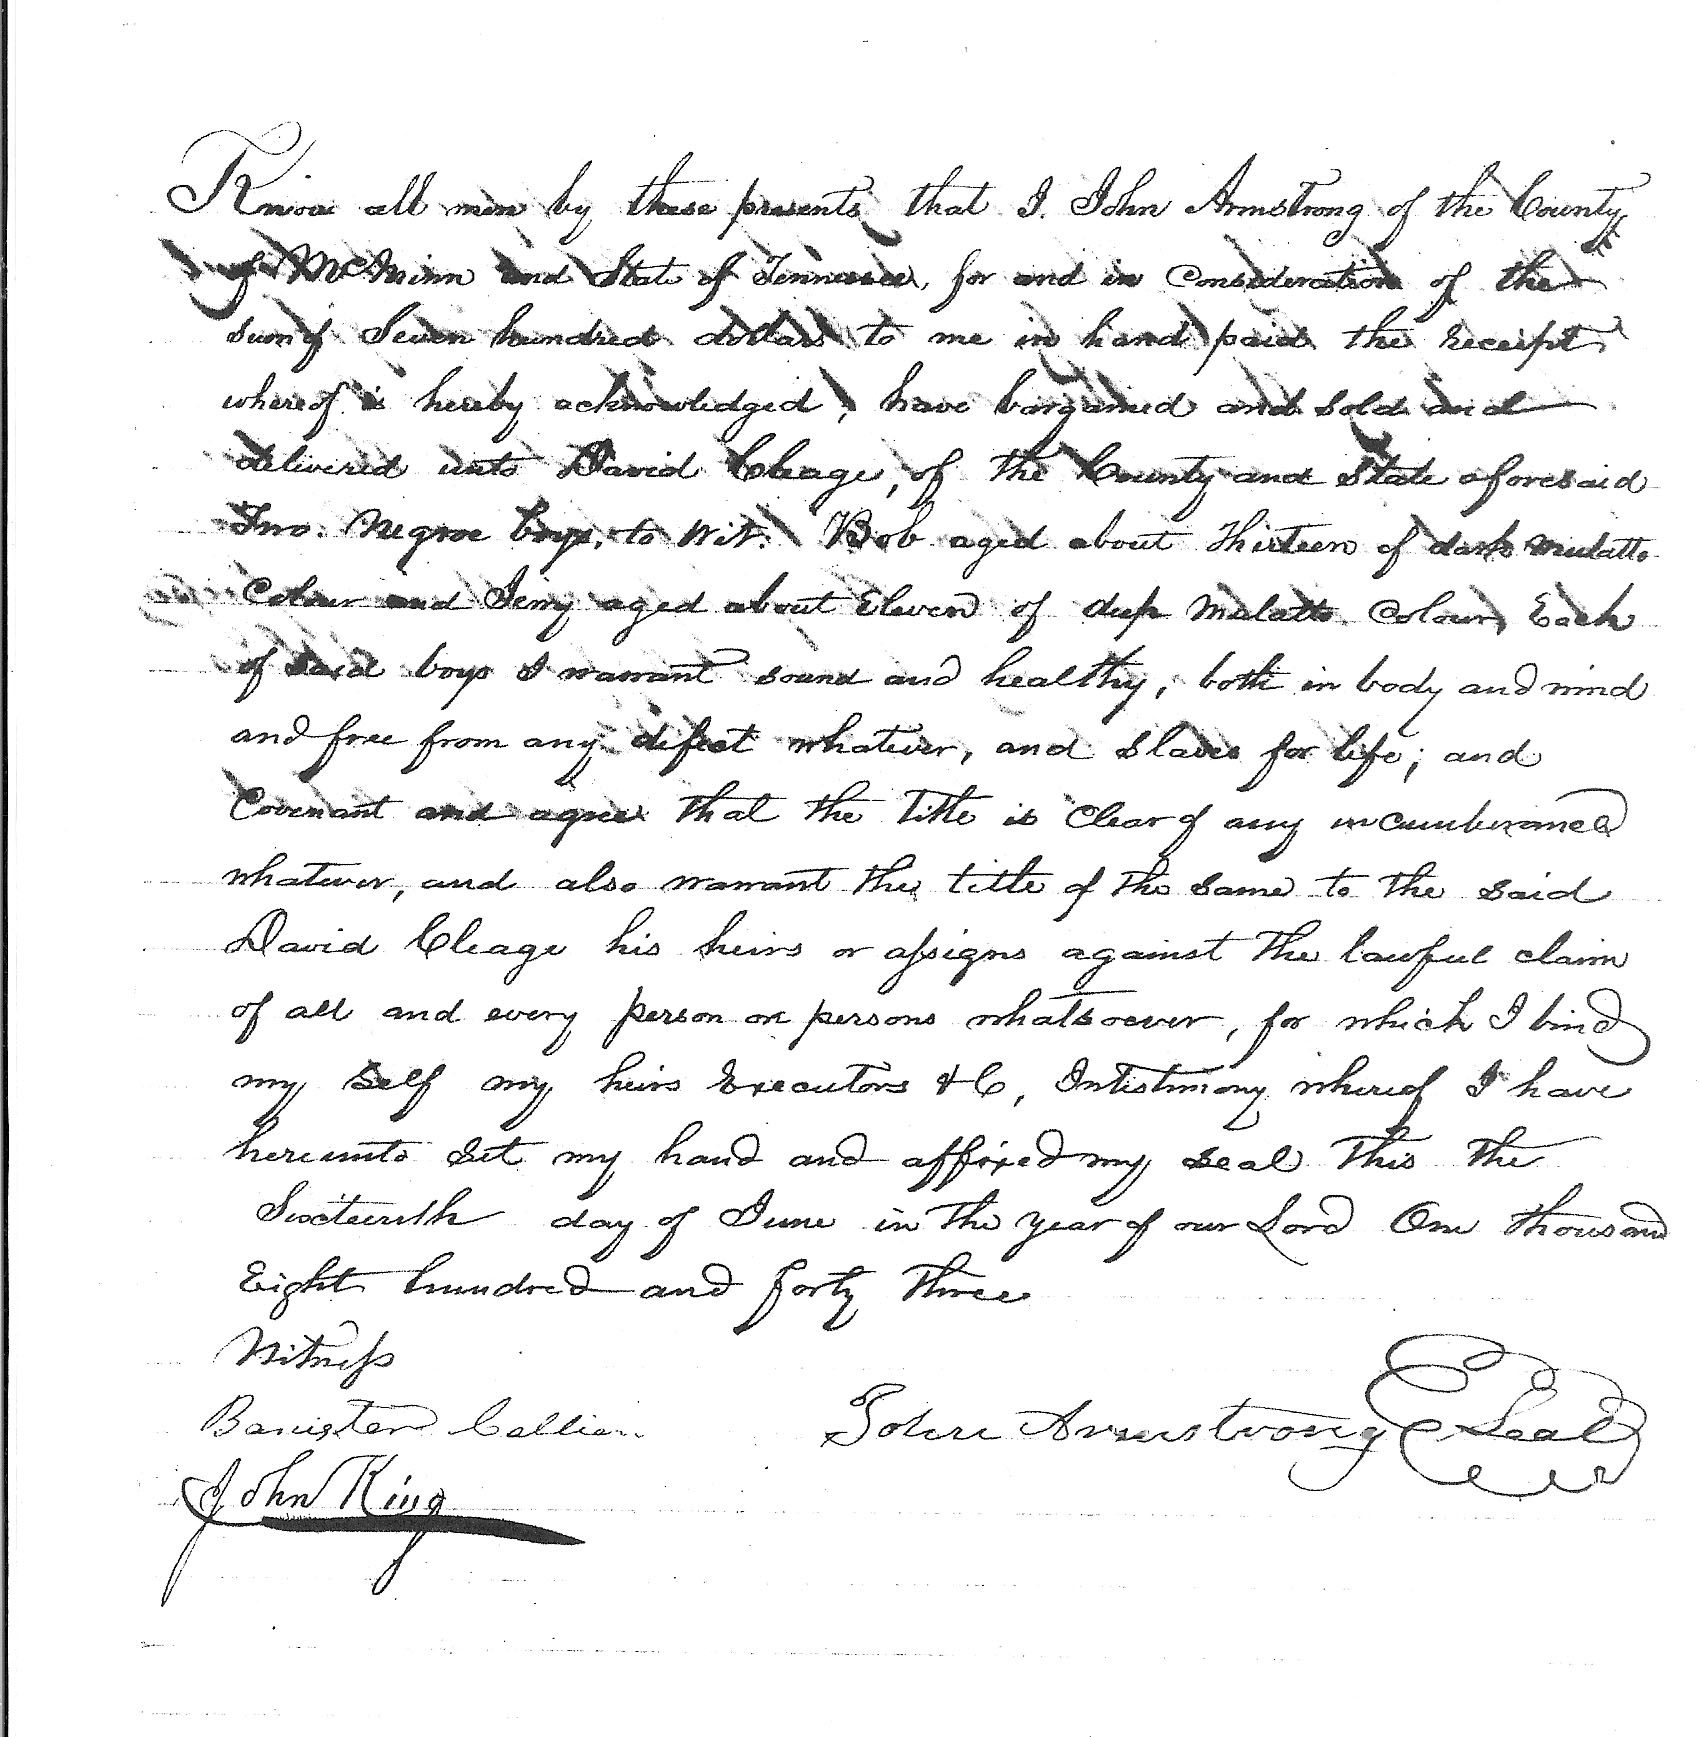 Know all men by these presents that I. John Armstrong of the County
of McMinn and State of Tennessee, for and in Consideration of the
sum of Seven hundred dollars to me in hand paid the receipt
whereof is hereby acknowledged, have bargained and sold and
delivered unto David Cleage, of the County and State aforesaid
Two. Negroe boys, to Wit. Bob aged about Thirteen of dark mulatto
Colour and Jerry aged about Eleven of deep Mulatto Colour, Each
of said boys I warrant sound and healthy, both in body and mind
and free from any defect whatever, and slaves for life; and
Covenant and agree that the Title is Clear of any incumberance
whatever, and also warrant the title of the same to the said
David Cleage his heirs or assigns against the lawful claim
of all and every person or persons whatsoever, for which I bind
my self my heirs Executors &C, In testimony whereof I have
hereunto set my hand and affixed my seal this the
Sixteenth day of June in the year of our Lord One thousand
Eight hundred and forty three
Witness
Banister
John Armstrong Seal
John King